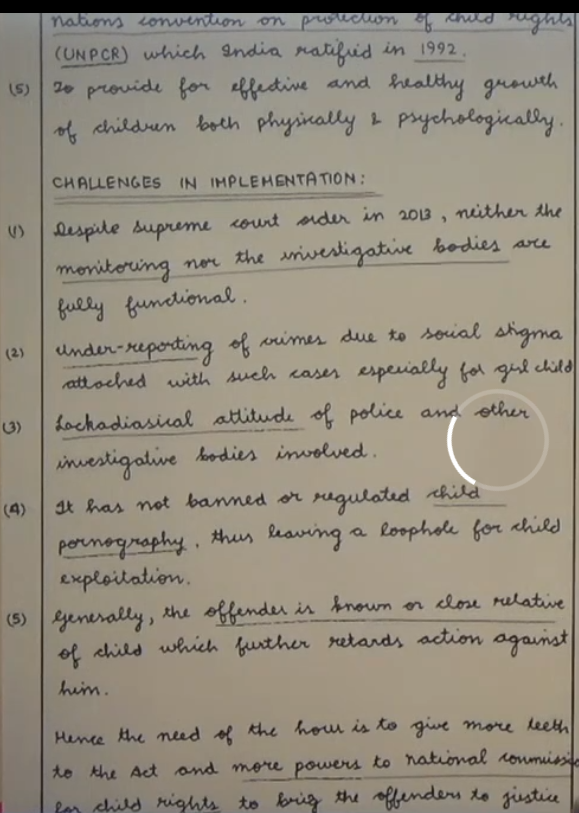 nations convention on protection of child rights
(UNPCR) which India ratified in 1992.
(5) To provide for effective and healthy growth
of children both physically & psychologically.
CHALLENGES IN IMPLEMENTATION:
(1) Despite supreme court order in 2013, neither the
monitoring nor the investigative bodies are
fully functional.
(2) Under-reporting of crimes due to social stigma
attached with such cases especially for girl child
(3) Lackadiasical attitude of police and other
investigative bodies involved.
(4) It has not banned or regulated child
pornography, thus leaving a loophole for child
exploitation.
(5) Generally, the offender is known or close relative
of child which further retards action against
him.
Hence the need of the hour is to give more teeth
to the Act and more powers to national commissio
for child rights to brig the offenders to justice